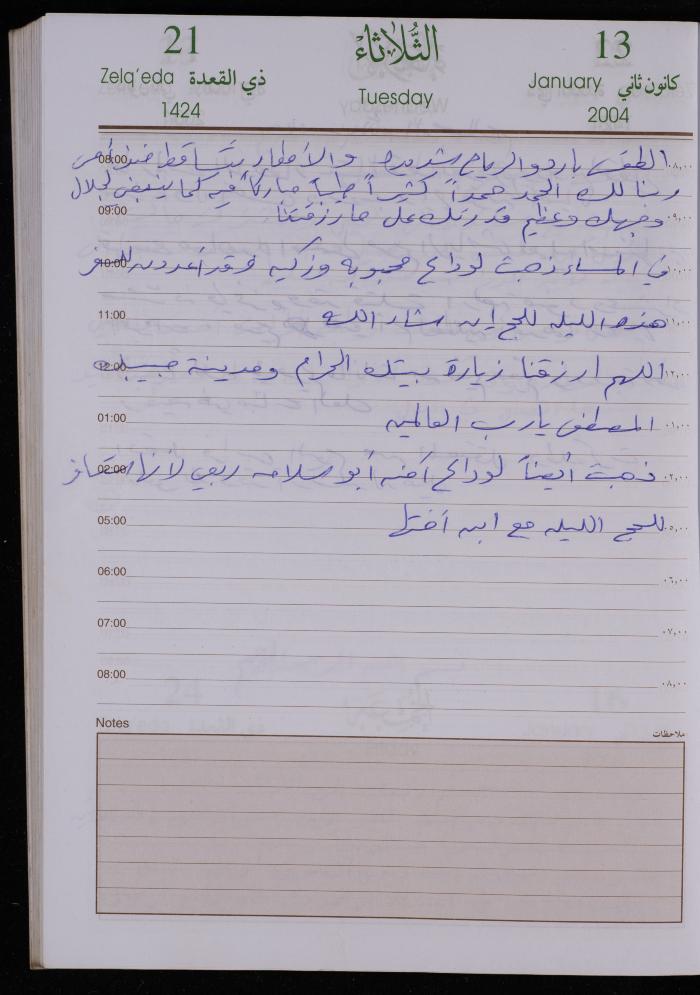 21 الثُّلَاثَاءْ 13
Zelq'eda ذي القعدة Tuesday January كانون ثاني
1424 2004
08:00 الطقس بارد والرياح شديده والأمطار تتساقط منذ أمس ٠٨,٠٠
ربنا لك الحمد حمداً كثيراً طيباً مباركاً فيه كما ينبغي لجلال
09:00 وجهك وعظيم قدرتك على ما رزقتنا ٠٩,٠٠
10:00 في المساء ذهبت لوداع محبوبه وزكيه فقد أعددن للسفر ١٠,٠٠
11:00 هذه الليله للحج إن شاء الله ١١,٠٠
12:00 اللهم ارزقنا زيارة بيتك الحرام ومدينة حبيبك ١٢,٠٠
01:00 المصطفى يا رب العالمين ٠١,٠٠
02:00 ذهبت أيضاً لوداع آمنه أبو سلامه ربعي لأنها ستسافر ٠٢,٠٠
05:00 للحج الليله مع ابن أختها ٠٥,٠٠
06:00 ٠٦,٠٠
07:00 ٠٧,٠٠
08:00 ٠٨,٠٠
Notes ملاحظات